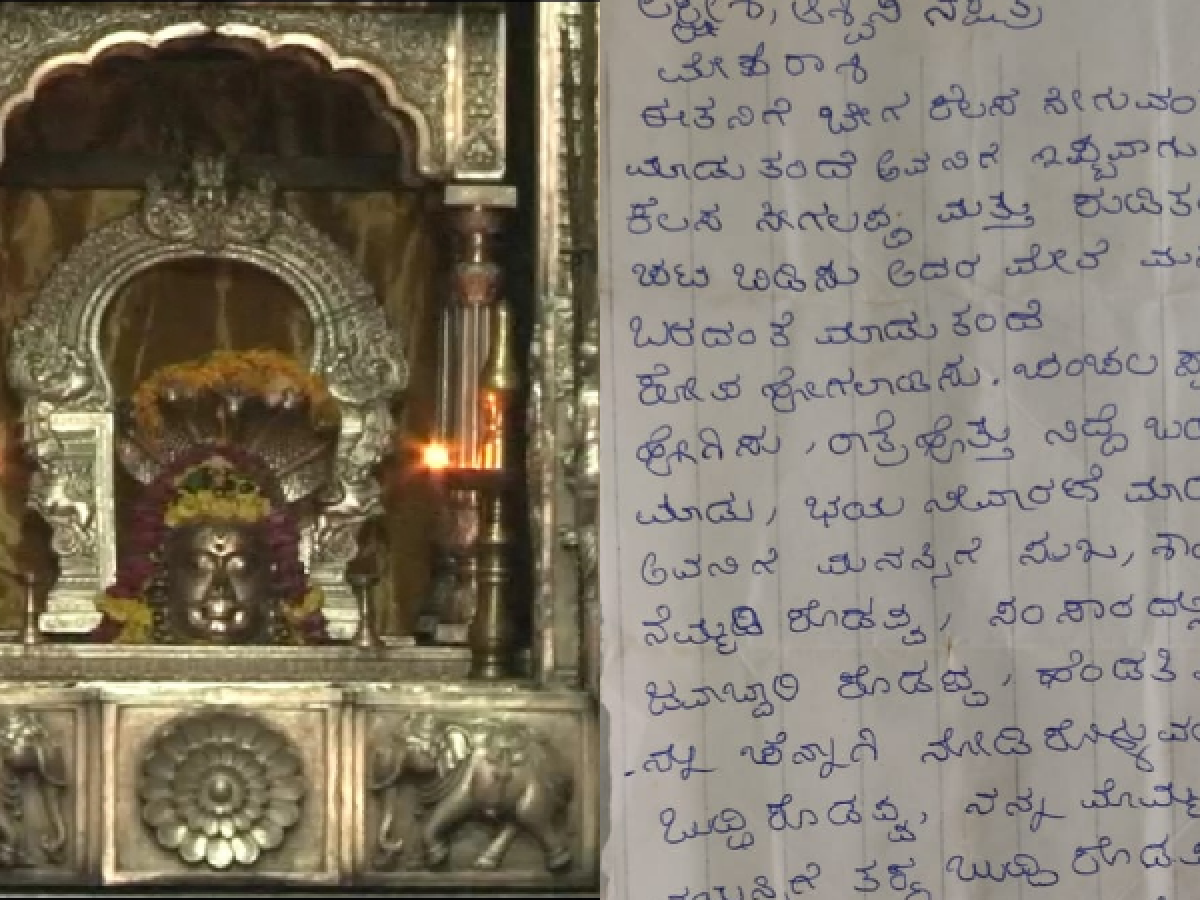 ಲಕ್ಷ್ಮೀಶ, ಅಶ್ವಿನಿ ನಕ್ಷತ್ರ
ಮೇಶರಾಶಿ
ಈತನಿಗೆ ಬೇಗ ಕೆಲಸ ಸೀಗುವಂ
ಮಾಡು ತಂದೆ ಅವನಿಗೆ ಇಷ್ಟವಾಗು
ಕೆಲಸ ಸೀಗಲಪ್ಪ ಮತ್ತು ಕುಡಿತ
ಚಟ ಬಿಡಿಸು ಅದರ ಮೇಲೆ ಮನ
ಬರದಂತೆ ಮಾಡು ತಂದೆ
ಕೋಪ ಹೋಗಲಾಡಿಸು. ಚಂಚಲ
ಹೋಗಿಸು, ರಾತ್ರೆಹೊತ್ತು ನಿದ್ದೆ ಬರ
ಮಾಡು, ಭಯ ನೀವಾರಣೆ ಮಾ
ಅವನಿಗೆ ಮನಸ್ಸಿಗೆ ಸುಖ, ಶಾ
ನೆಮ್ಮದಿ ಕೊಡಪ್ಪ, ಸಂಸಾರದಲ್ಲಿ
ಜವಾಬ್ದಾರಿ ಕೊಡಪ್ಪ, ಹೆಂಡತಿ
ನ್ನು ಚೆನ್ನಾಗಿ ನೋಡಿಕೊಳ್ಳುವ
ಬುದ್ದಿಕೊಡಪ್ಪ, ನನ್ನ ಮೊಮ್ಮ
ತಕ್ಕ ಬುದ್ದಿ ಕೊಡಪ